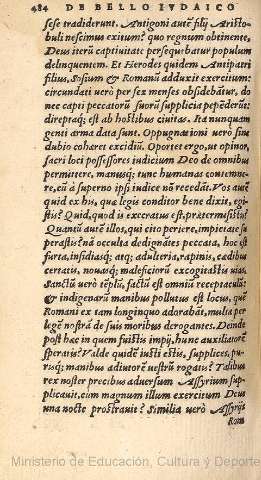 484 DE BELLO IVDAICO
sese tradiderunt. Antigoni autē filij Aristo-
buli nescimus exitum? quo regnum obtinente,
Deus iterū captiuitate persequebatur populum
delinquentem. Et Herodes quidem Antipatri
filius, Sosium & Romanū adduxit exercitum:
circundati verò per sex menses obsidebātur, do
nec capti peccatorū suorū supplicia pependerūt:
direptaq; est ab hostibus ciuitas. Ita nunquam
genti arma data sunt. Oppugnationi verò sine
dubio cohæret excidiū. Oportet ergo, ut opinor,
sacri loci possessores iudicium Deo de omnibus
permittere, manusq; tunc humanas contemne-
re, cū à superno ipsi iudice nō recedāt. Vos autē
quid ex his, quæ legis conditor bene dixit, egi-
stis? Quid, quod is execratus est, prætermisistis?
Quantū autē illos, qui citò periere, impietate su
perastis? nā occulta dedignātes peccata, hoc est
furta, insidiasq; atq; adulteria, rapinis, cædibus
certatis, nouasq; maleficiorū excogitastis uias.
Sanctū verò tēplū, factū est omniū receptaculū:
& indigenarū manibus pollutus est locus, quē
Romani ex tam longinquo adorabāt, multa per
legē nostrā de suis moribus derogantes. Deinde
post hæc in quem fuistis impij, hunc auxiliatorē
speratis? Valde quidē iusti estis, supplices, pu-
risq; manibus adiutorē vestrū rogatis? Talibus
rex noster precibus aduersum Assyrium sup-
plicauit, cum magnum illum exercitum Deus
una nocte prostrauit? Similia verò Assyrijs
Rom
Ministerio de Educación, Cultura y Deporte